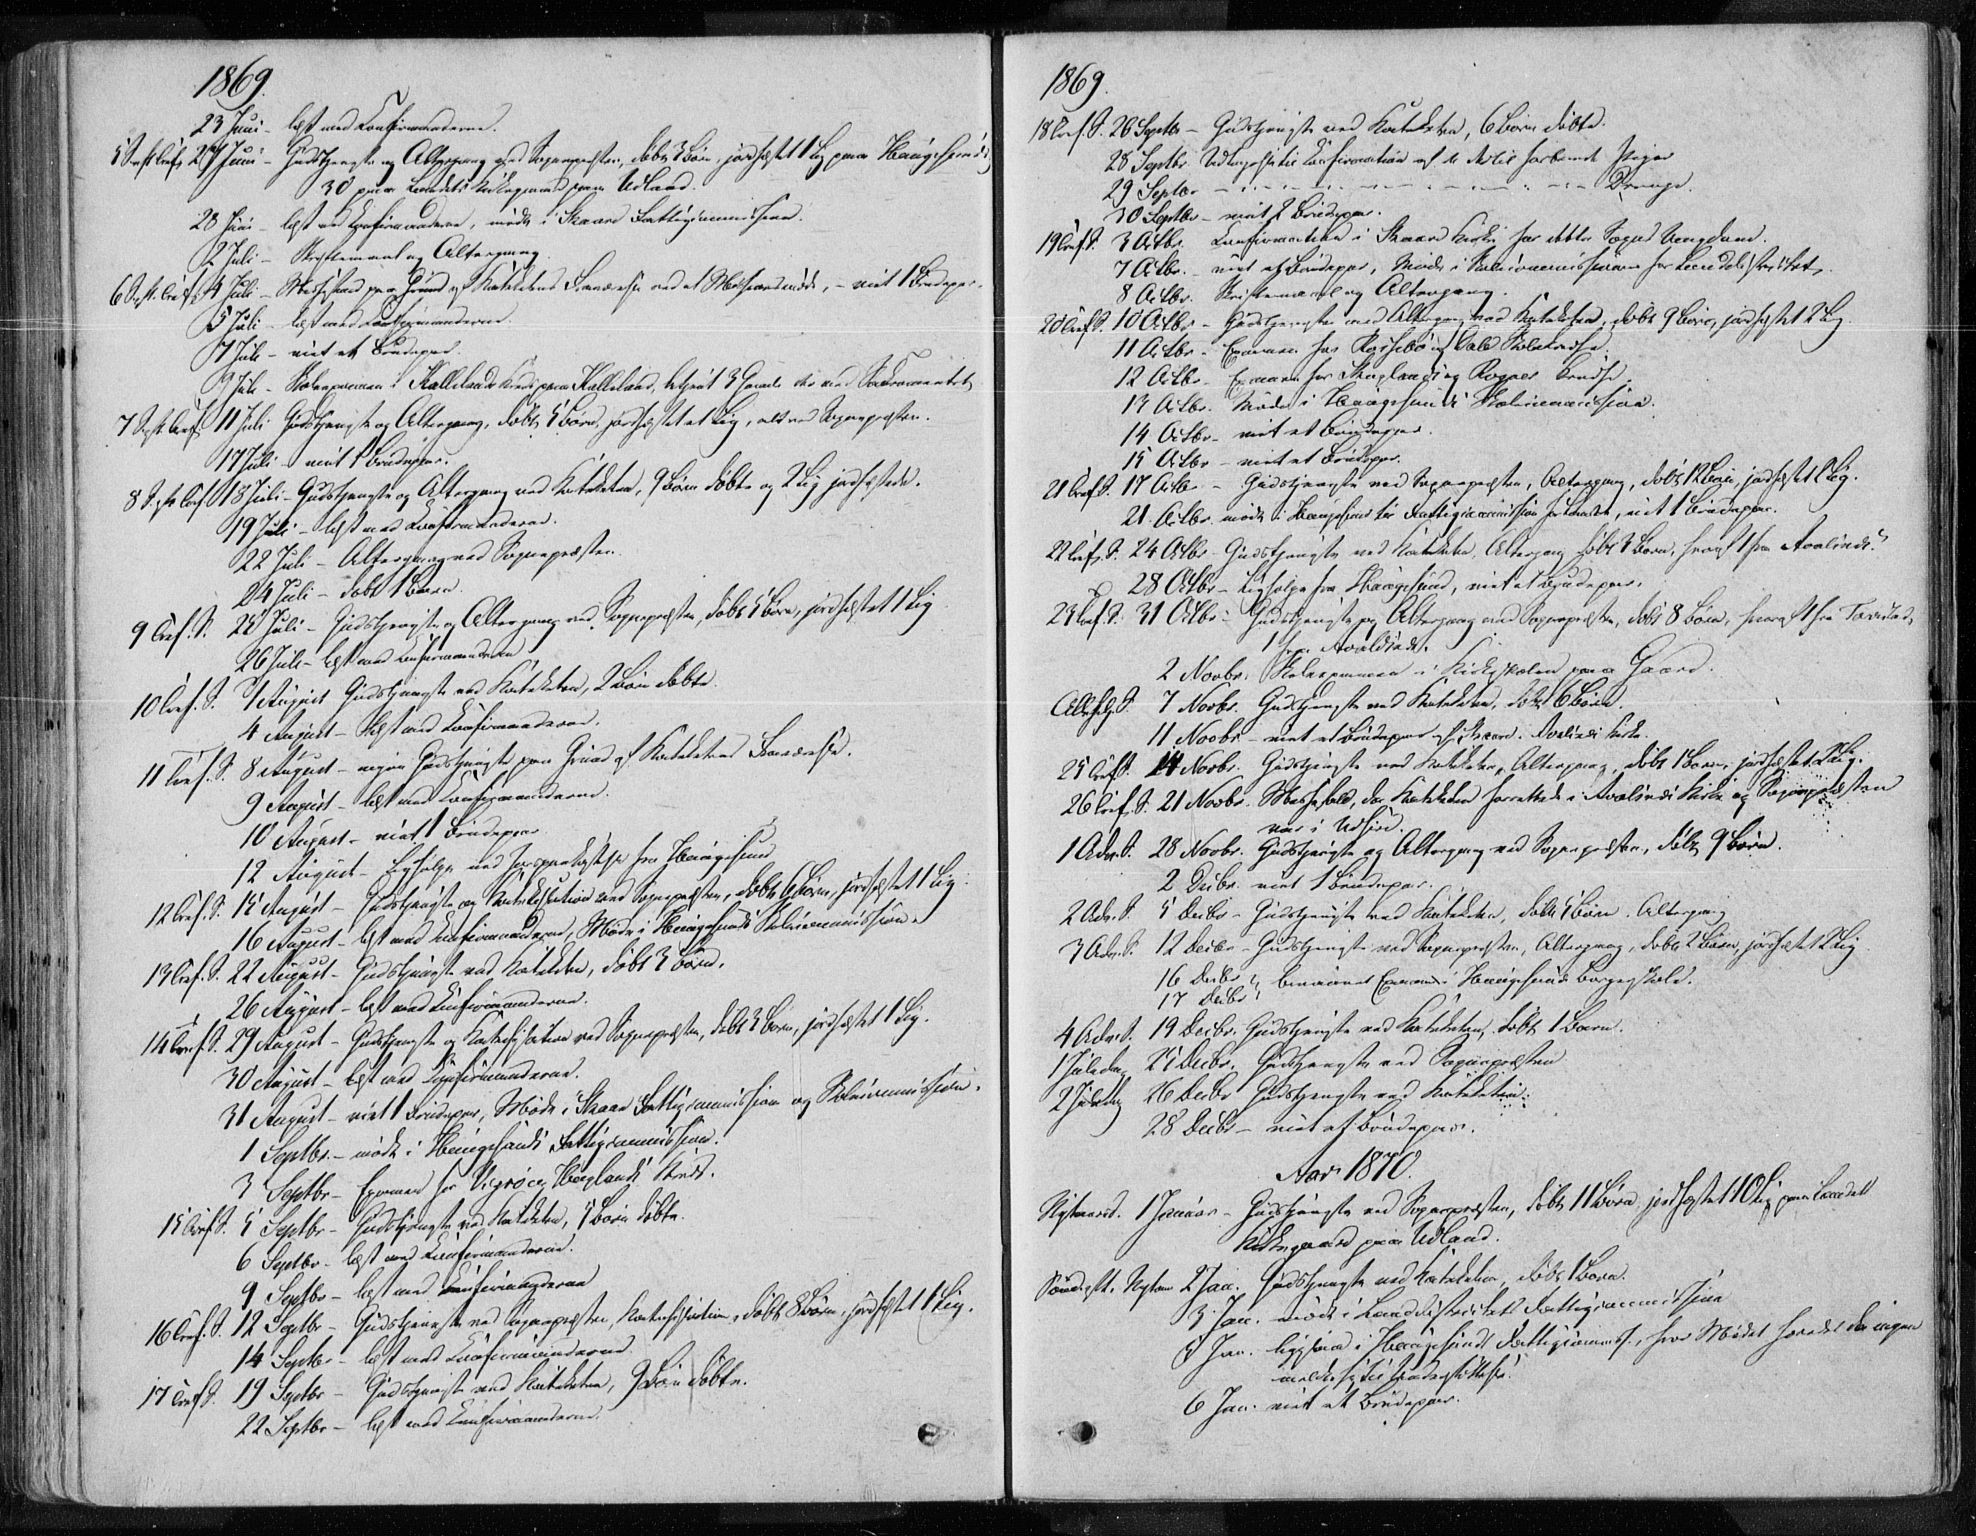 1869.
23 Juni - læst med Konfirmanderne.
27 Juni - Gudstjeneste og Altergang ved Sognepræsten, døbt 3 Børn, jordfæstet 1 Lig paa Haugesund
30 paa Landets Kirkegaard paa Udland.
28 Juni - læst med Konfirmanderne, møde i Skaare Fattigcommission.
2 Juli - Skriftemaal og Altergang.
4 Juli - Messefald paa Grund af Kateketens - viet 1 Brudepar.
5 Juli - læst med Konfirmanderne.
7 Juli - viet et Brudepar.
9 Juli - Skoleexamen i paa
7 S. e. Tref. 11 Juli Gudstjeneste og Altergang, døbt 5 Børn, jordfæstet et Lig, alt ved Sognepræsten.
17 Juli - viet 1 Brudepar.
18 Juli - Gudstjeneste og Altergang ved Kateketen, 9 Børn døbte og 2 Lig jordfæstede.
19 Juli - læst med Konfirmanderne.
22 Juli - Altergang ved Sognepræsten.
24 Juli - døbt 1 Barn.
9 Tref. S. 25 Juli - Gudstjeneste og Altergang ved Sognepræsten, døbt 5 Børn, jordfæstet 1 Lig
26 Juli - læst med Konfirmanderne
10 Tref. S. 1 August Gudstjeneste ved Kateketen, 2 Børn døbte.
4 August - læst med Konfirmanderne.
11 Tref. S. 8 August - ingen Gudstjeneste paa Grund af Kateketens
9 August - læst med Konfirmanderne.
10 August - viet 1 Brudepar
12 August - Ligfølge fra Haugesund
12 Tref. S. 15 August - Gudstjeneste og Katekisation ved Sognepræsten, døbt 6 Børn, jordfæstet 1 Lig.
16 August - læst med Konfirmanderne, Møde i Haugesunds Skolecommission.
13 Tref. S. 22 August - Gudstjeneste ved Kateketen, døbt 3 Børn.
26 August - læst med Konfirmanderne.
14 Tref. S. 29 August - Gudstjeneste og Katekisation ved Sognepræsten, døbt 3 Børn, jordfæstet 1 Lig.
30 August - læst med Konfirmanderne.
31 August - viet 1 Brudepar, Møde i Skaare Fattigcommission og Skolecommission.
1 Septbr. - møde i Haugesunds Fattigcommission.
3 Septbr - Examen for Kreds.
15 Tref. S. 5 Septbr - Gudstjeneste ved Kateketen, 5 Børn døbte.
6 Septbr - læst med Konfirmanderne.
9 Septbr - læst med Konfirmanderne
16 Tref. S. 12 Septbr - Gudstjeneste ved Sognepræsten, Katekisation, døbt 8 Børn, jordfæstet 1 Lig.
14 Septbr - læst med Konfirmanderne.
17 Tref. S. 19 Septbr - Gudstjeneste ved Kateketen, 9 Børn døbte.
22 Septbr - læst med Konfirmanderne.
1869.
18 Tref. S. 26 Septbr - Gudstjeneste ved Kateketen, 6 Børn døbte.
28 Septbr. Piger
29 Septbr Drenge.
30 Septbr - viet 2 Brudepar.
19 Tref. S. 3 Octbr. Konfirmation i Skaare Kirke for dette Sogns Ungdom.
7 Octbr. - viet et Brudepar, Møde i Skolecommissionen for Landdistriktet.
8 Octbr. Skriftemaal og Altergang.
20 Tref. S. 10 Octbr - Gudstjeneste med Altergang ved Kateketen, døbt 9 Børn, jordfæstet 2 Lig.
11 Octbr - Examen for og
12 Octbr - Examen for og Kredse.
13 Octbr. Møde i Haugesunds Skolecommission.
14 Octbr - viet et Brudepar.
15 Octbr - viet et Brudepar.
21 Tref. S. 17 Octbr - Gudstjeneste ved Sognepræsten, Altergang, døbt 12 Børn, jordfæstet Lig.
21 Octbr møde i Haugesund viet 1 Brudepar.
22 Tref. S. 24 Octbr - Gudstjeneste ved Kateketen, Altergang, døbt 3 Børn, hvoraf 1 fra Avaldsnes.
28 Octbr - Ligfølge fra Haugesund, viet et Brudepar.
23 Tref. S. 31 Octbr - Gudstjeneste og Altergang ved Sognepræsten, døbt 8 Børn, hvoraf 1 fra
1 fra Avaldsnes.
2 Novbr. Skoleexamen i paa Gaard.
Alleh. S. 7 Novbr. Gudstjeneste ved Kateketen, døbt 6 Børn.
11 Novbr - viet et Brudepar Avaldsnes Kirke.
25 Tref. S. 14 Novbr. Gudstjeneste ved Kateketen, Altergang, døbt 1 Barn, jordfæstet 2 Lig.
26 Tref. S. 21 Novbr. Messefald, da Kateketen forrettede i Avaldsnes Kirke og Sognepræsten
var i Udsire.
1 Adv. S. 28 Novbr. Gudstjeneste og Altergang ved Sognepræsten, døbt 9 Børn.
2 Decbr. viet 1 Brudepar.
2 Adv. S. 5 Decbr - Gudstjeneste ved Kateketen, døbt 5 Børn. Altergang
3 Adv. S. 12 Decbr - Gudstjeneste ved Sognepræsten, Altergang, døbt 2 Børn, jordfæstet 2 Lig
16 Decbr Examen i Haugesunds Borgerskole.
17 Decbr
4 Adv. S. 19 Decbr. Gudstjeneste ved Kateketen, døbt 1 Barn.
1 Juledag 25 Decbr. Gudstjeneste ved Sognepræsten
2 Juledag 26 Decbr Gudstjeneste ved Kateketen.
28 Decbr - viet et Brudepar.
Aar 1870.
Nytaarsd. 1 Januar - Gudstjeneste ved Sognepræsten, døbt 11 Børn, jordfæstet 10 Lig paa Landets
Kirkegaard paa Udland.
Søndag eft. Nytaar 2 Jan. Gudstjeneste ved Kateketen, døbt 1 Barn.
3 Jan. møde i Landdistriktets Fattigcommission
5 Jan. i Haugesunds Fattigcommiss., hvor Mødet hævedes da ingen
meldte sig til Understøttelse.
6 Jan. viet et Brudepar.